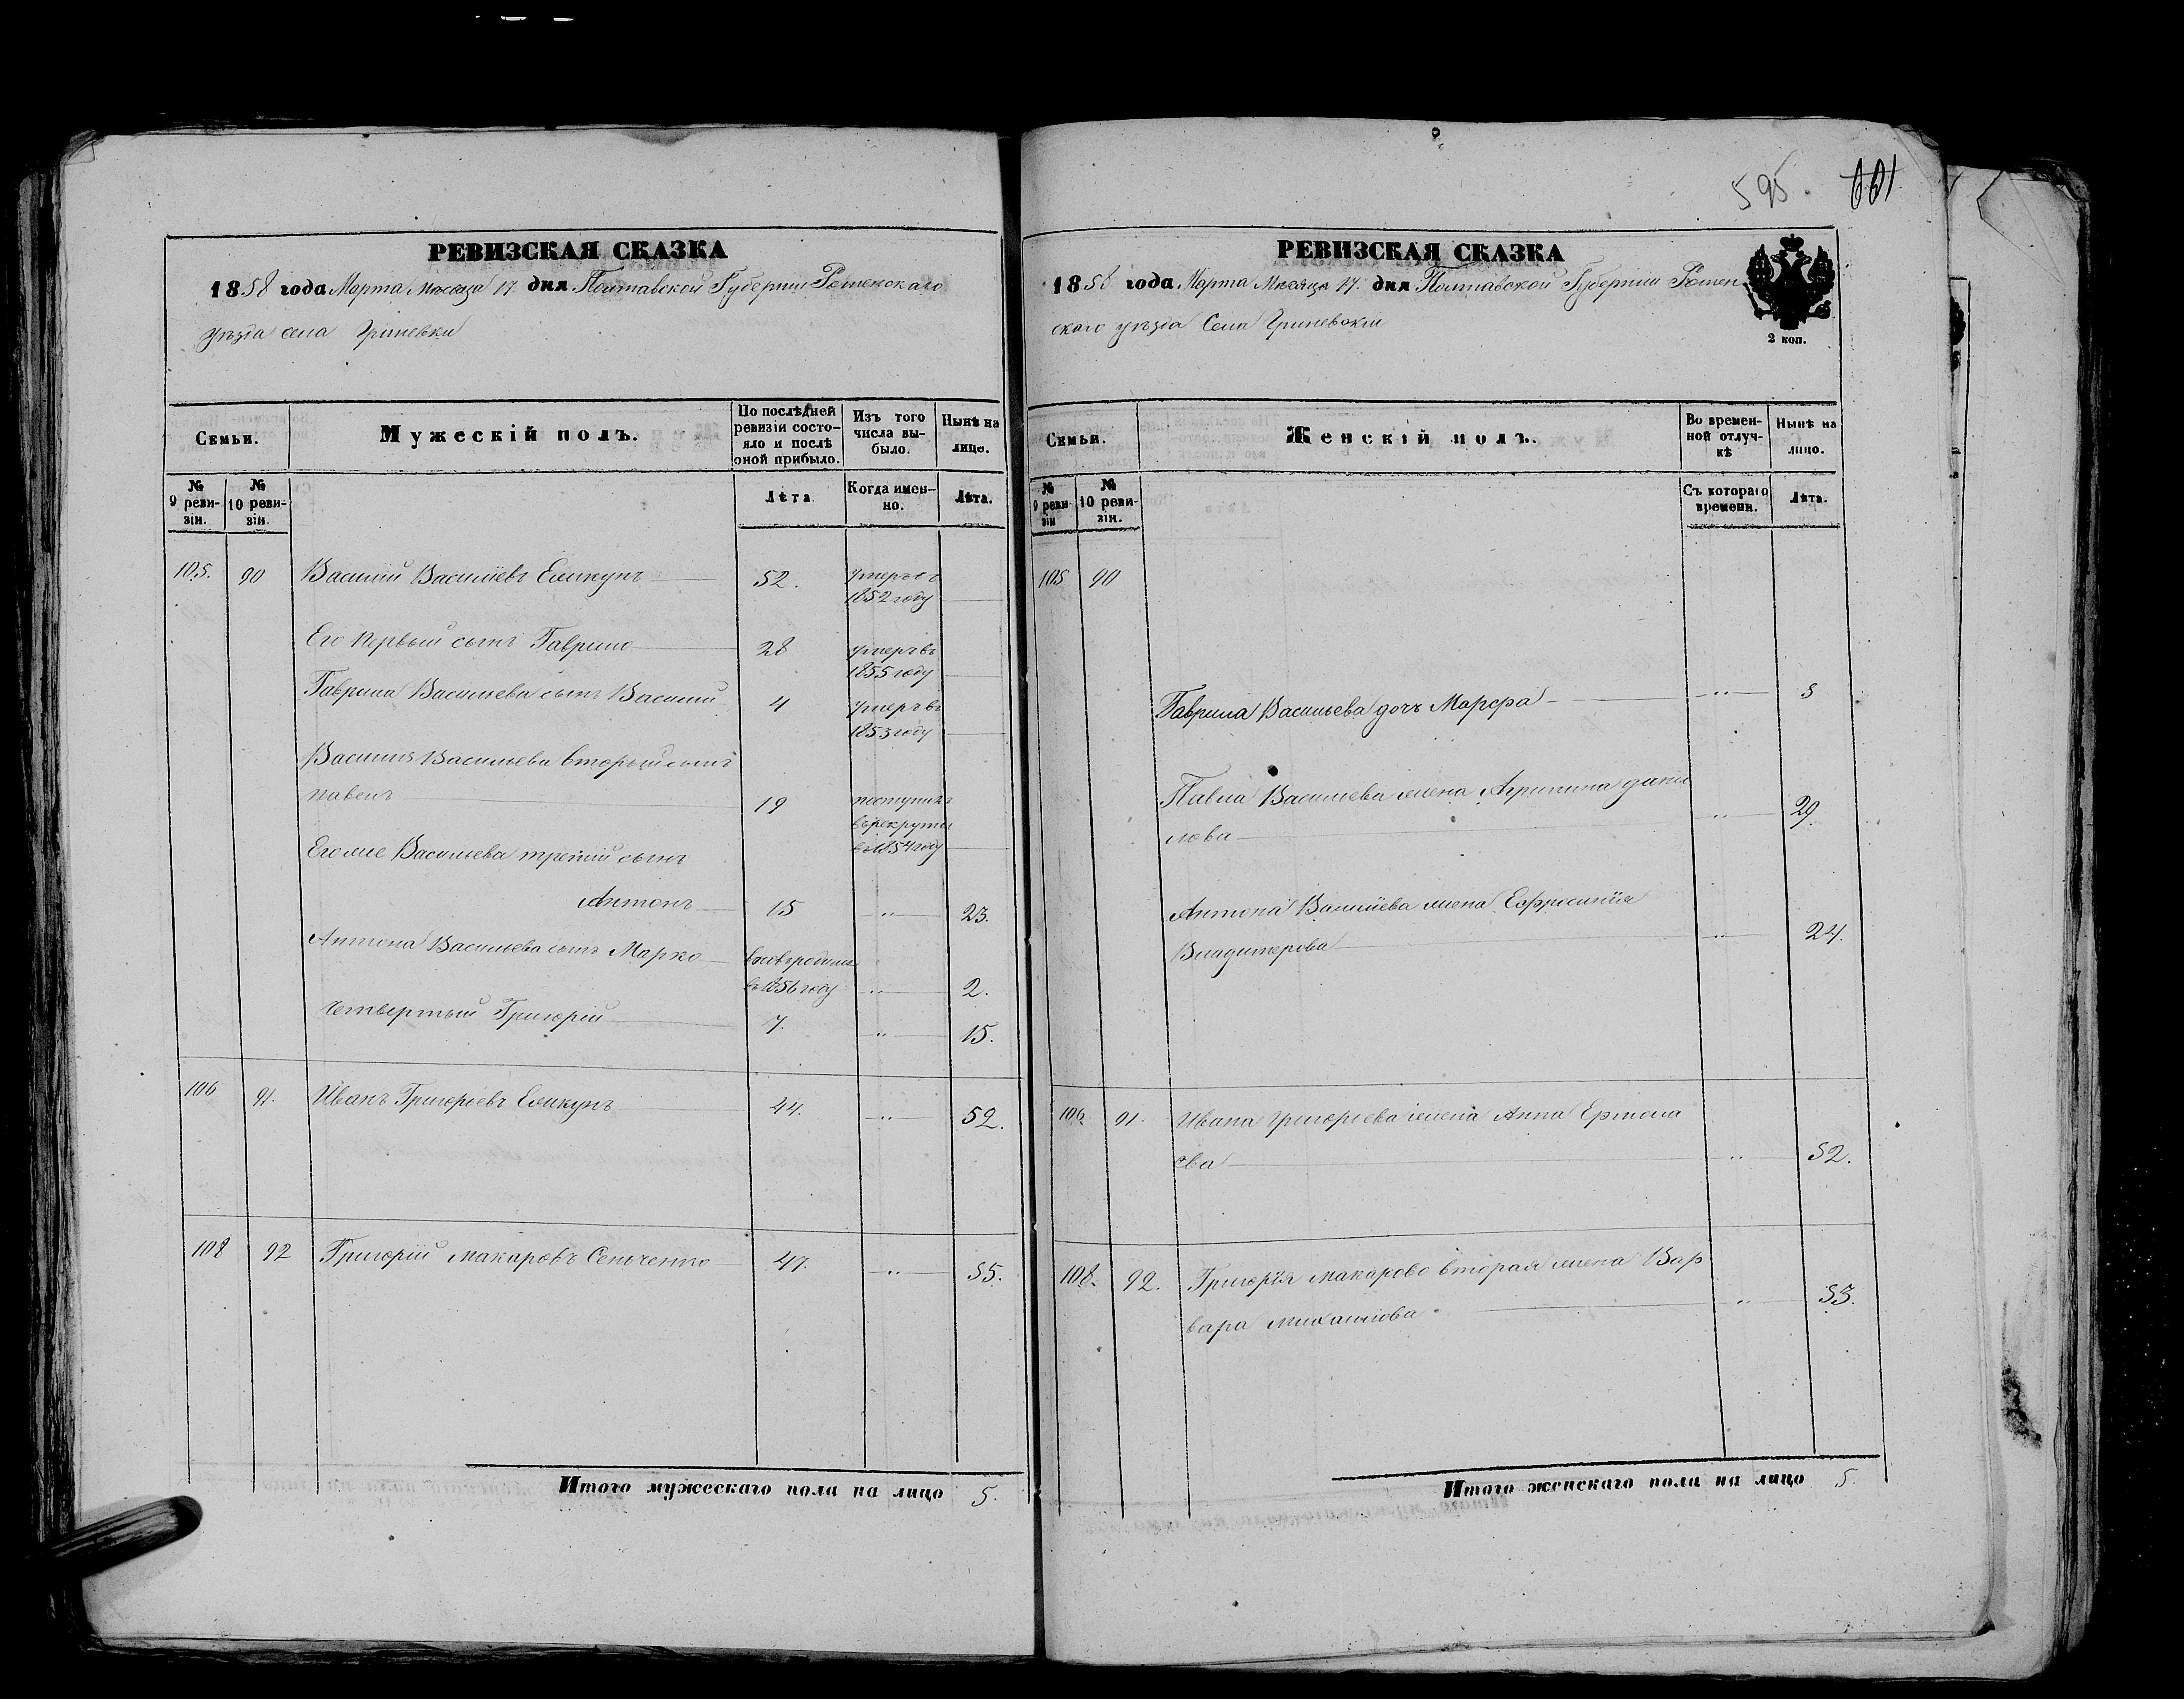 595. 601
РЕВИЗСКАЯ СКАЗКА
1858 года Марта Месяца 17. дня Полтавской Губернии Роменскаго
уезда села Гриневки
Семьи.
Мужескій полъ.
По послѣдней ревизіи состо-
яло и послѣ
оной прибыло.
Изъ того
числа вы-
было.
Нынѣ на
лицо.
№
9 реви-
зіи.
№
10 реви-
зіи.
Лѣта
Когда имен-
но.
Лѣта.
105. 90 Василий Васильевъ Еликунъ 52. умеръ въ
1852 году
Его первый сынъ Гаврило 28 умеръ въ
1855 году
Гаврила Васильева сынъ Василий 4 умеръ въ
1853 году
Василия Васильева вторый сынъ
павелъ 19 поступилъ
въ рекруты
въ 1854 году
Егоже Васильева третий сынъ
Антонъ 15 „ 23.
Антона Васильева сынъ Марко
въ 1856 году „ 2.
Четвертый Григорий 7. „ 15.
106 91. Иванъ Григорьевъ Еликунъ 44. „ 52.
108 92 Григорий Макаровъ Сенченко 47. „ 55.
Итого мужескаго пола на лицо 5.
РЕВИЗСКАЯ СКАЗКА
1858 года Марта Месяца 17. дня Полтавской Губернии Ромен
ского уезда Села
2 коп.
Семьи.
Женскій полъ.
Во времен-
ной отлуч-
кѣ
Нынѣ на
лицо.
№
9 реви-
зіи
№
10 реви-
зіи.
Съ котораго
времени.
Лѣта.
105 90
Гаврила Васильева дочь Марфа „ 5
Павла Васильева жена Агрипина дани
лова „ 29.
Антона Васильева жена Ефросинія
Владимерова „ 24.
106. 91. Ивана Григорьева жена Анна Ермола
ева „ 52.
108. 92. Григорія Макарова вторая жена Вар
вара михаилова „ 53.
Итого женскаго пола на лицо 5.